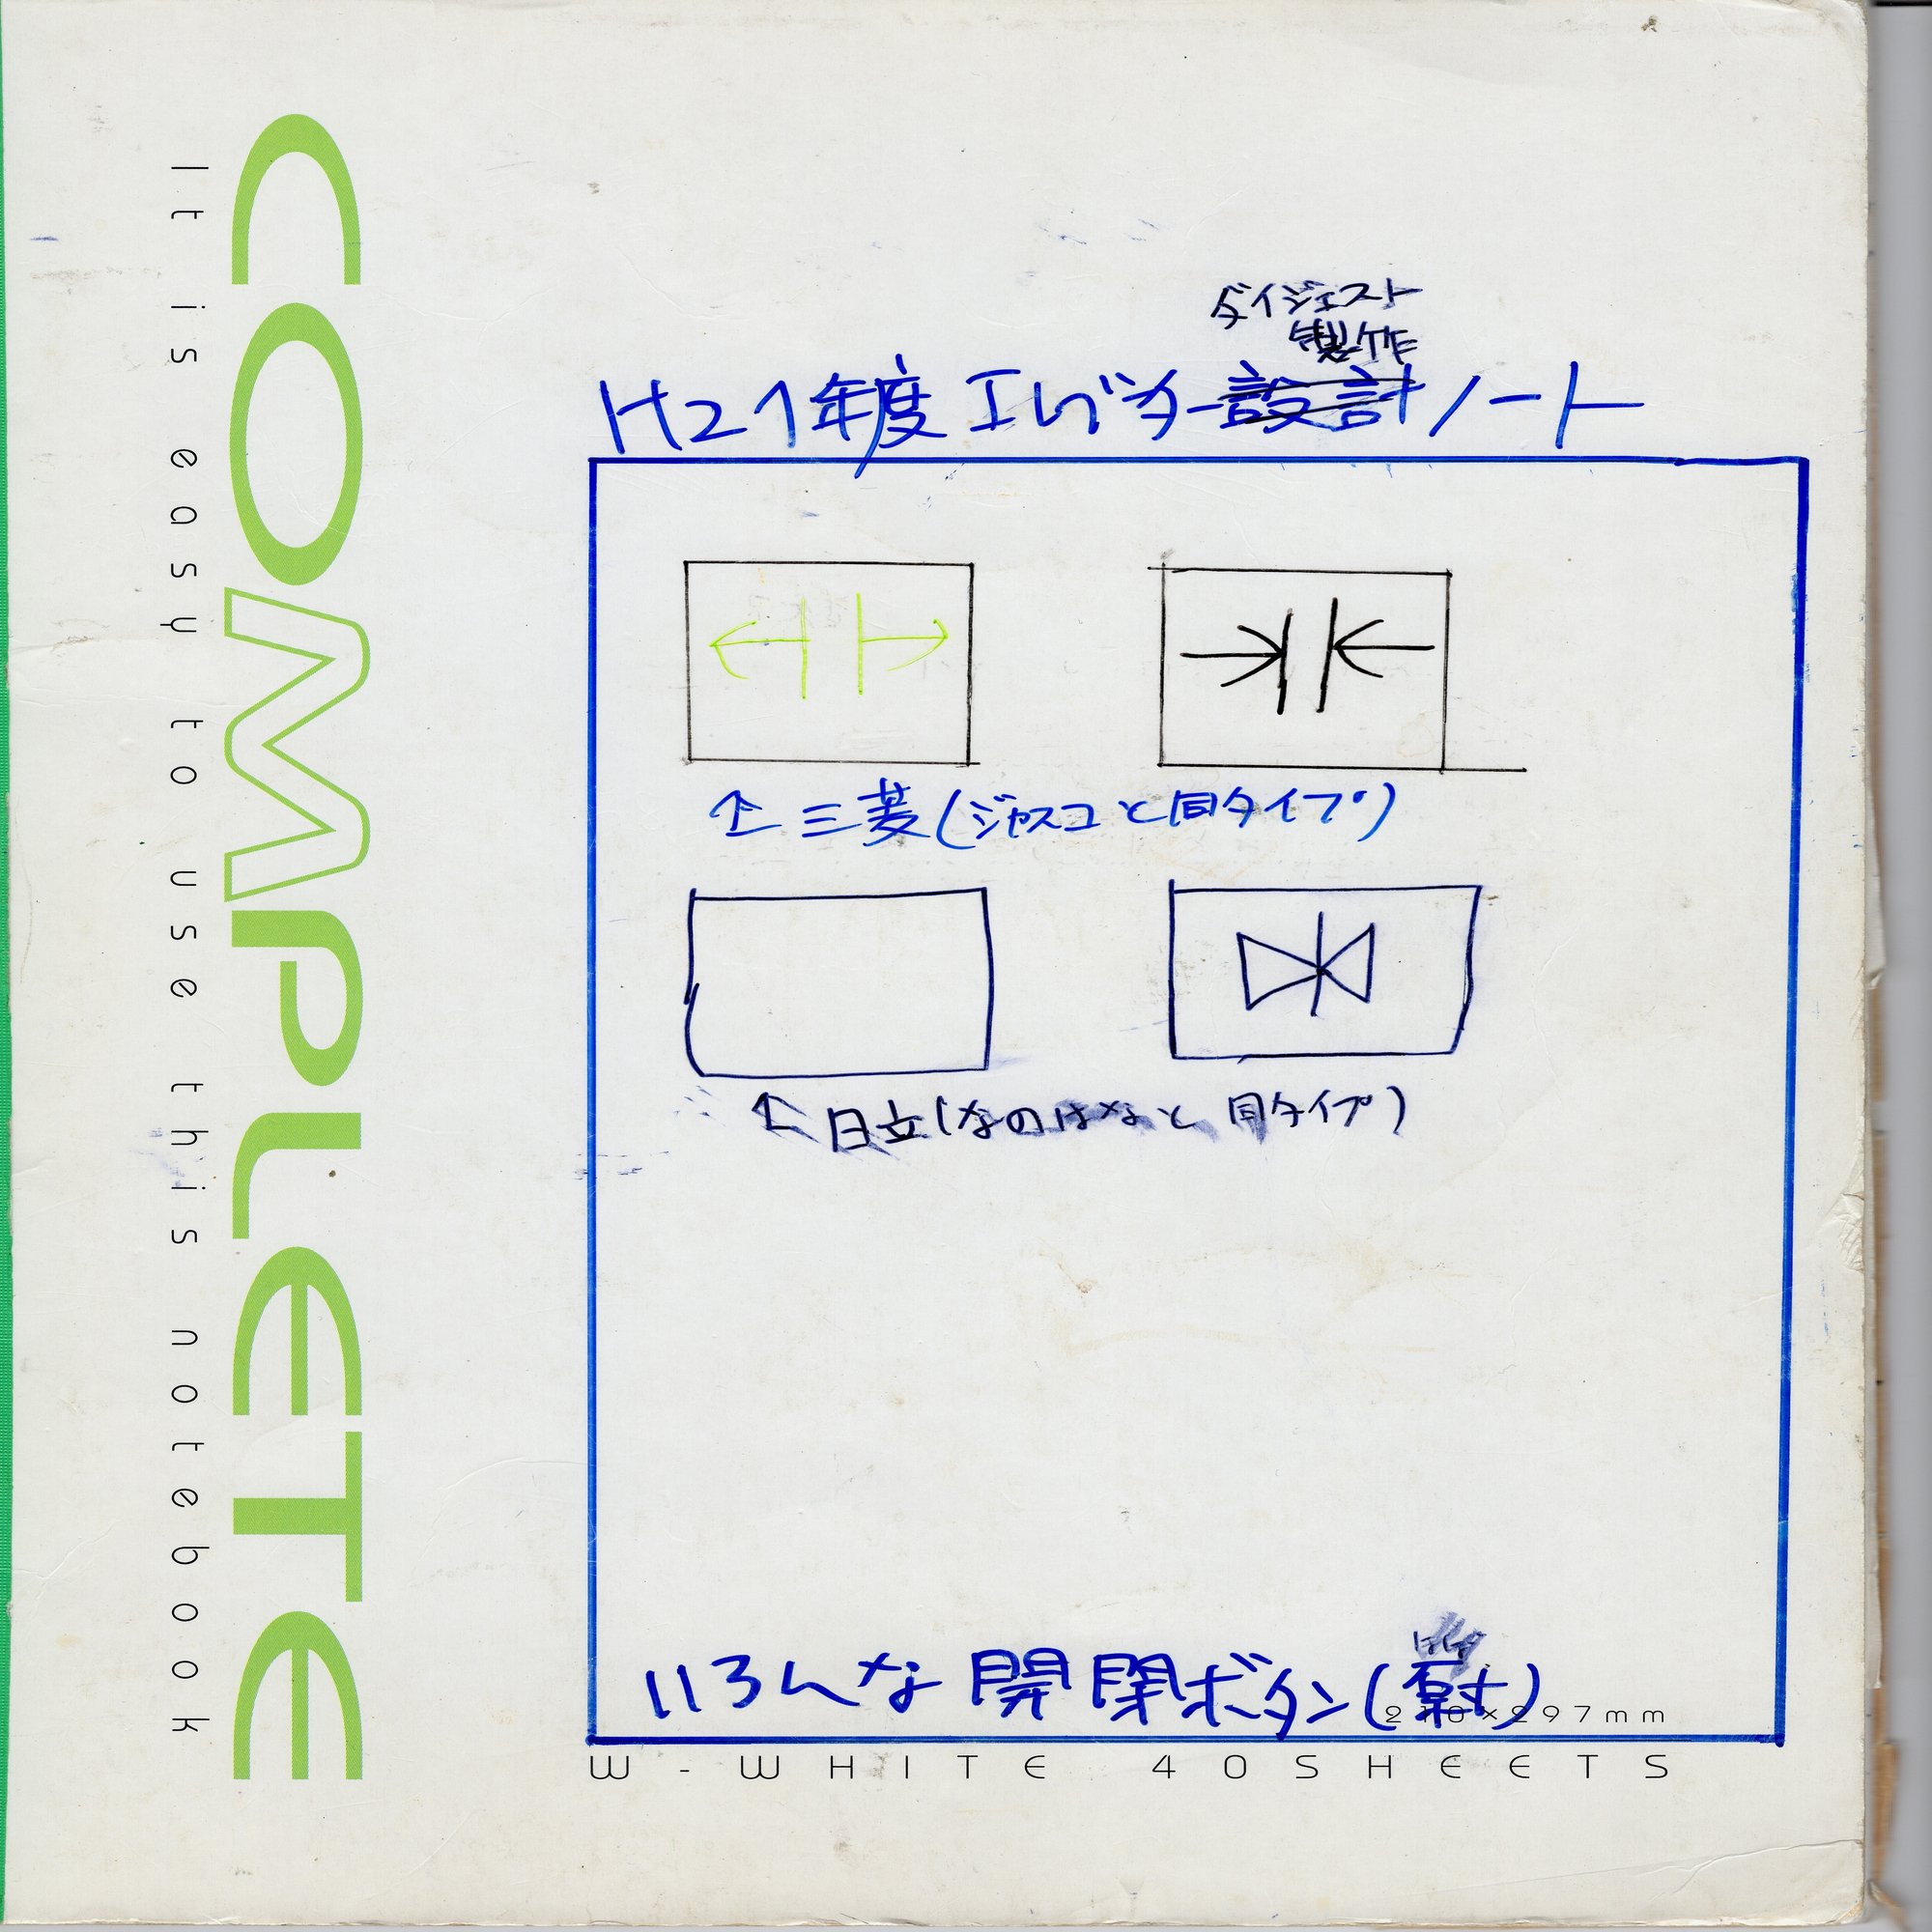 COMPLETE
It is easy to use this notebook
ダイジェスト
製作
H21年度エレベーター設計ノート
↑三菱(ジャスコと同タイプ)
↑日立(なのはなと同タイプ)
いろんな開閉ボタン(
210×297mm
W-WHITE 40SHEETS